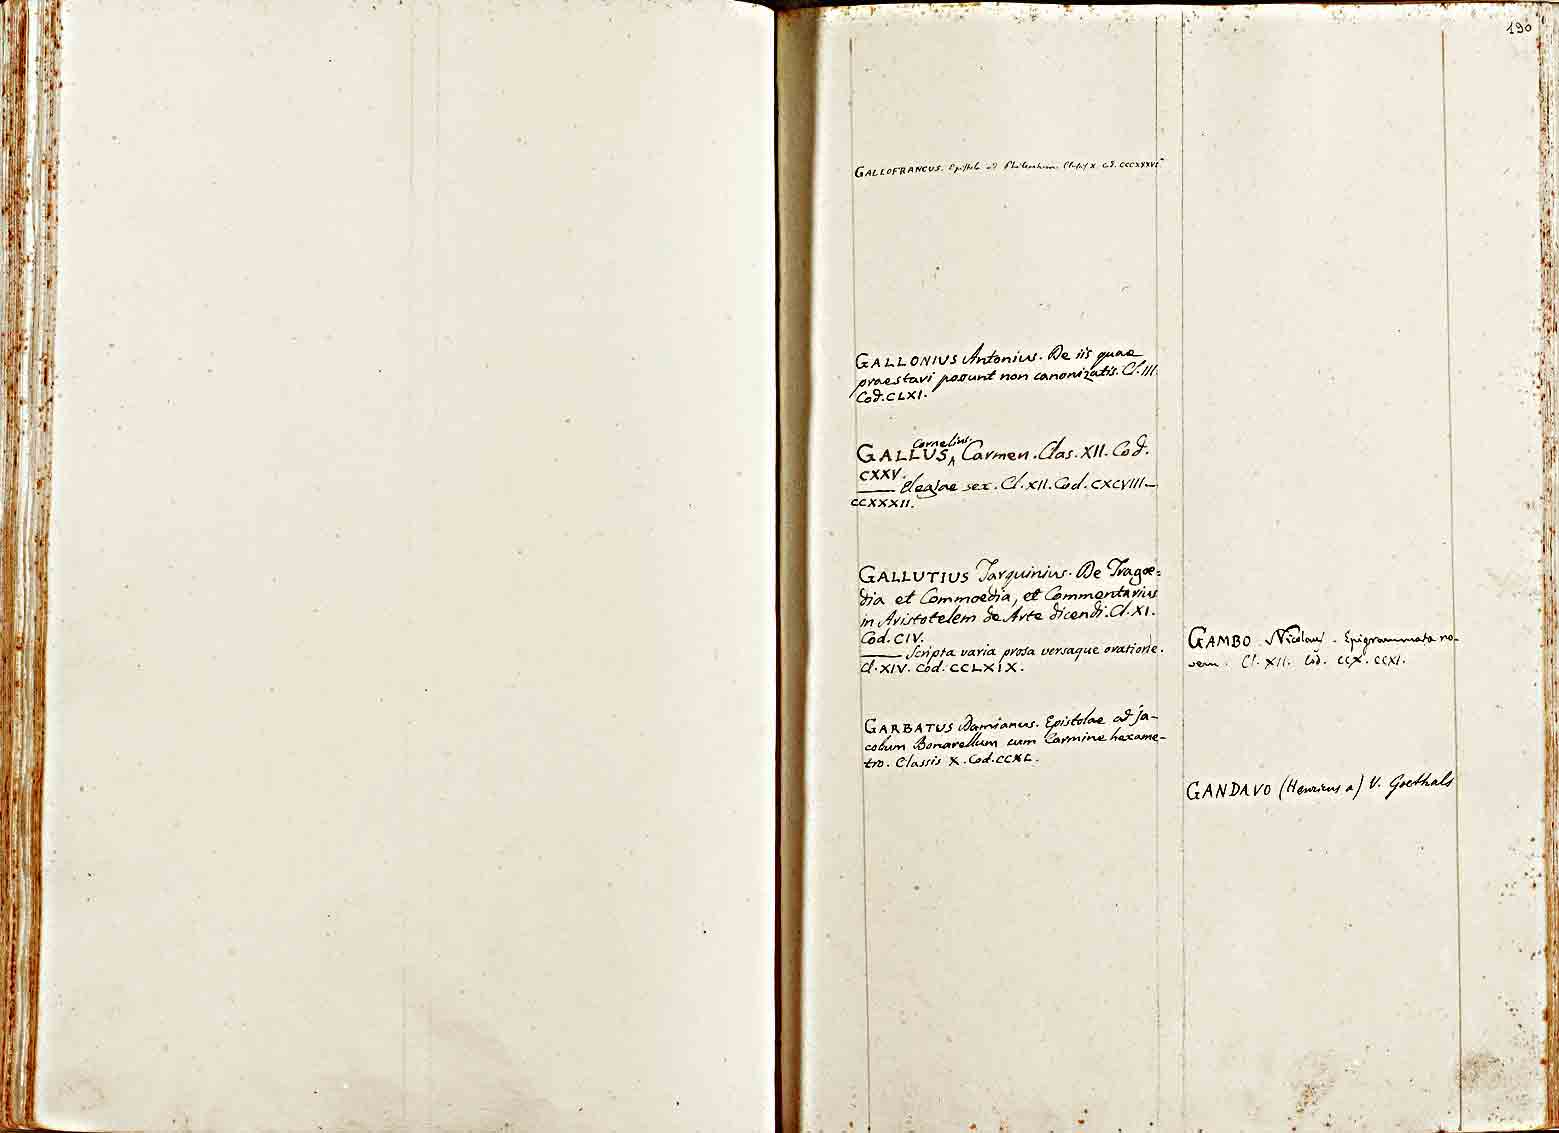 190
GALLOFRANCUS. Epistola ad Philenium. Classis X. Cod. CCCXXXVI
GALLONIUS Antonius. De iis quae
praestari possunt non canonizatis. Cl. III.
Cod. CLXI.
Cornelius
GALLUS, Carmen. Clas. XII. Cod.
CXXV.
—— Elegiae sex. Cl. XII. Cod. CXCVIII—
CCXXXII.
GALLUTIUS Tarquinius. De Tragoe=
dia et Commoedia, et Commentarius
in Aristotelem de Arte dicendi. Cl. XI.
Cod. CIV.
—— Scripta varia prosa versaque oratione.
Cl. XIV. Cod. CCLXIX.
GARBATUS Damianus. Epistolae ad Ja-
cobum Bonarellum cum Carmine hexame-
tro. Classis X. Cod. CCXL.
GAMBO Nicolaus. Epigrammata no-
vem. Cl. XII. Cod. CCX. CCXI.
GANDAVO (Henricus a) V. Goethals